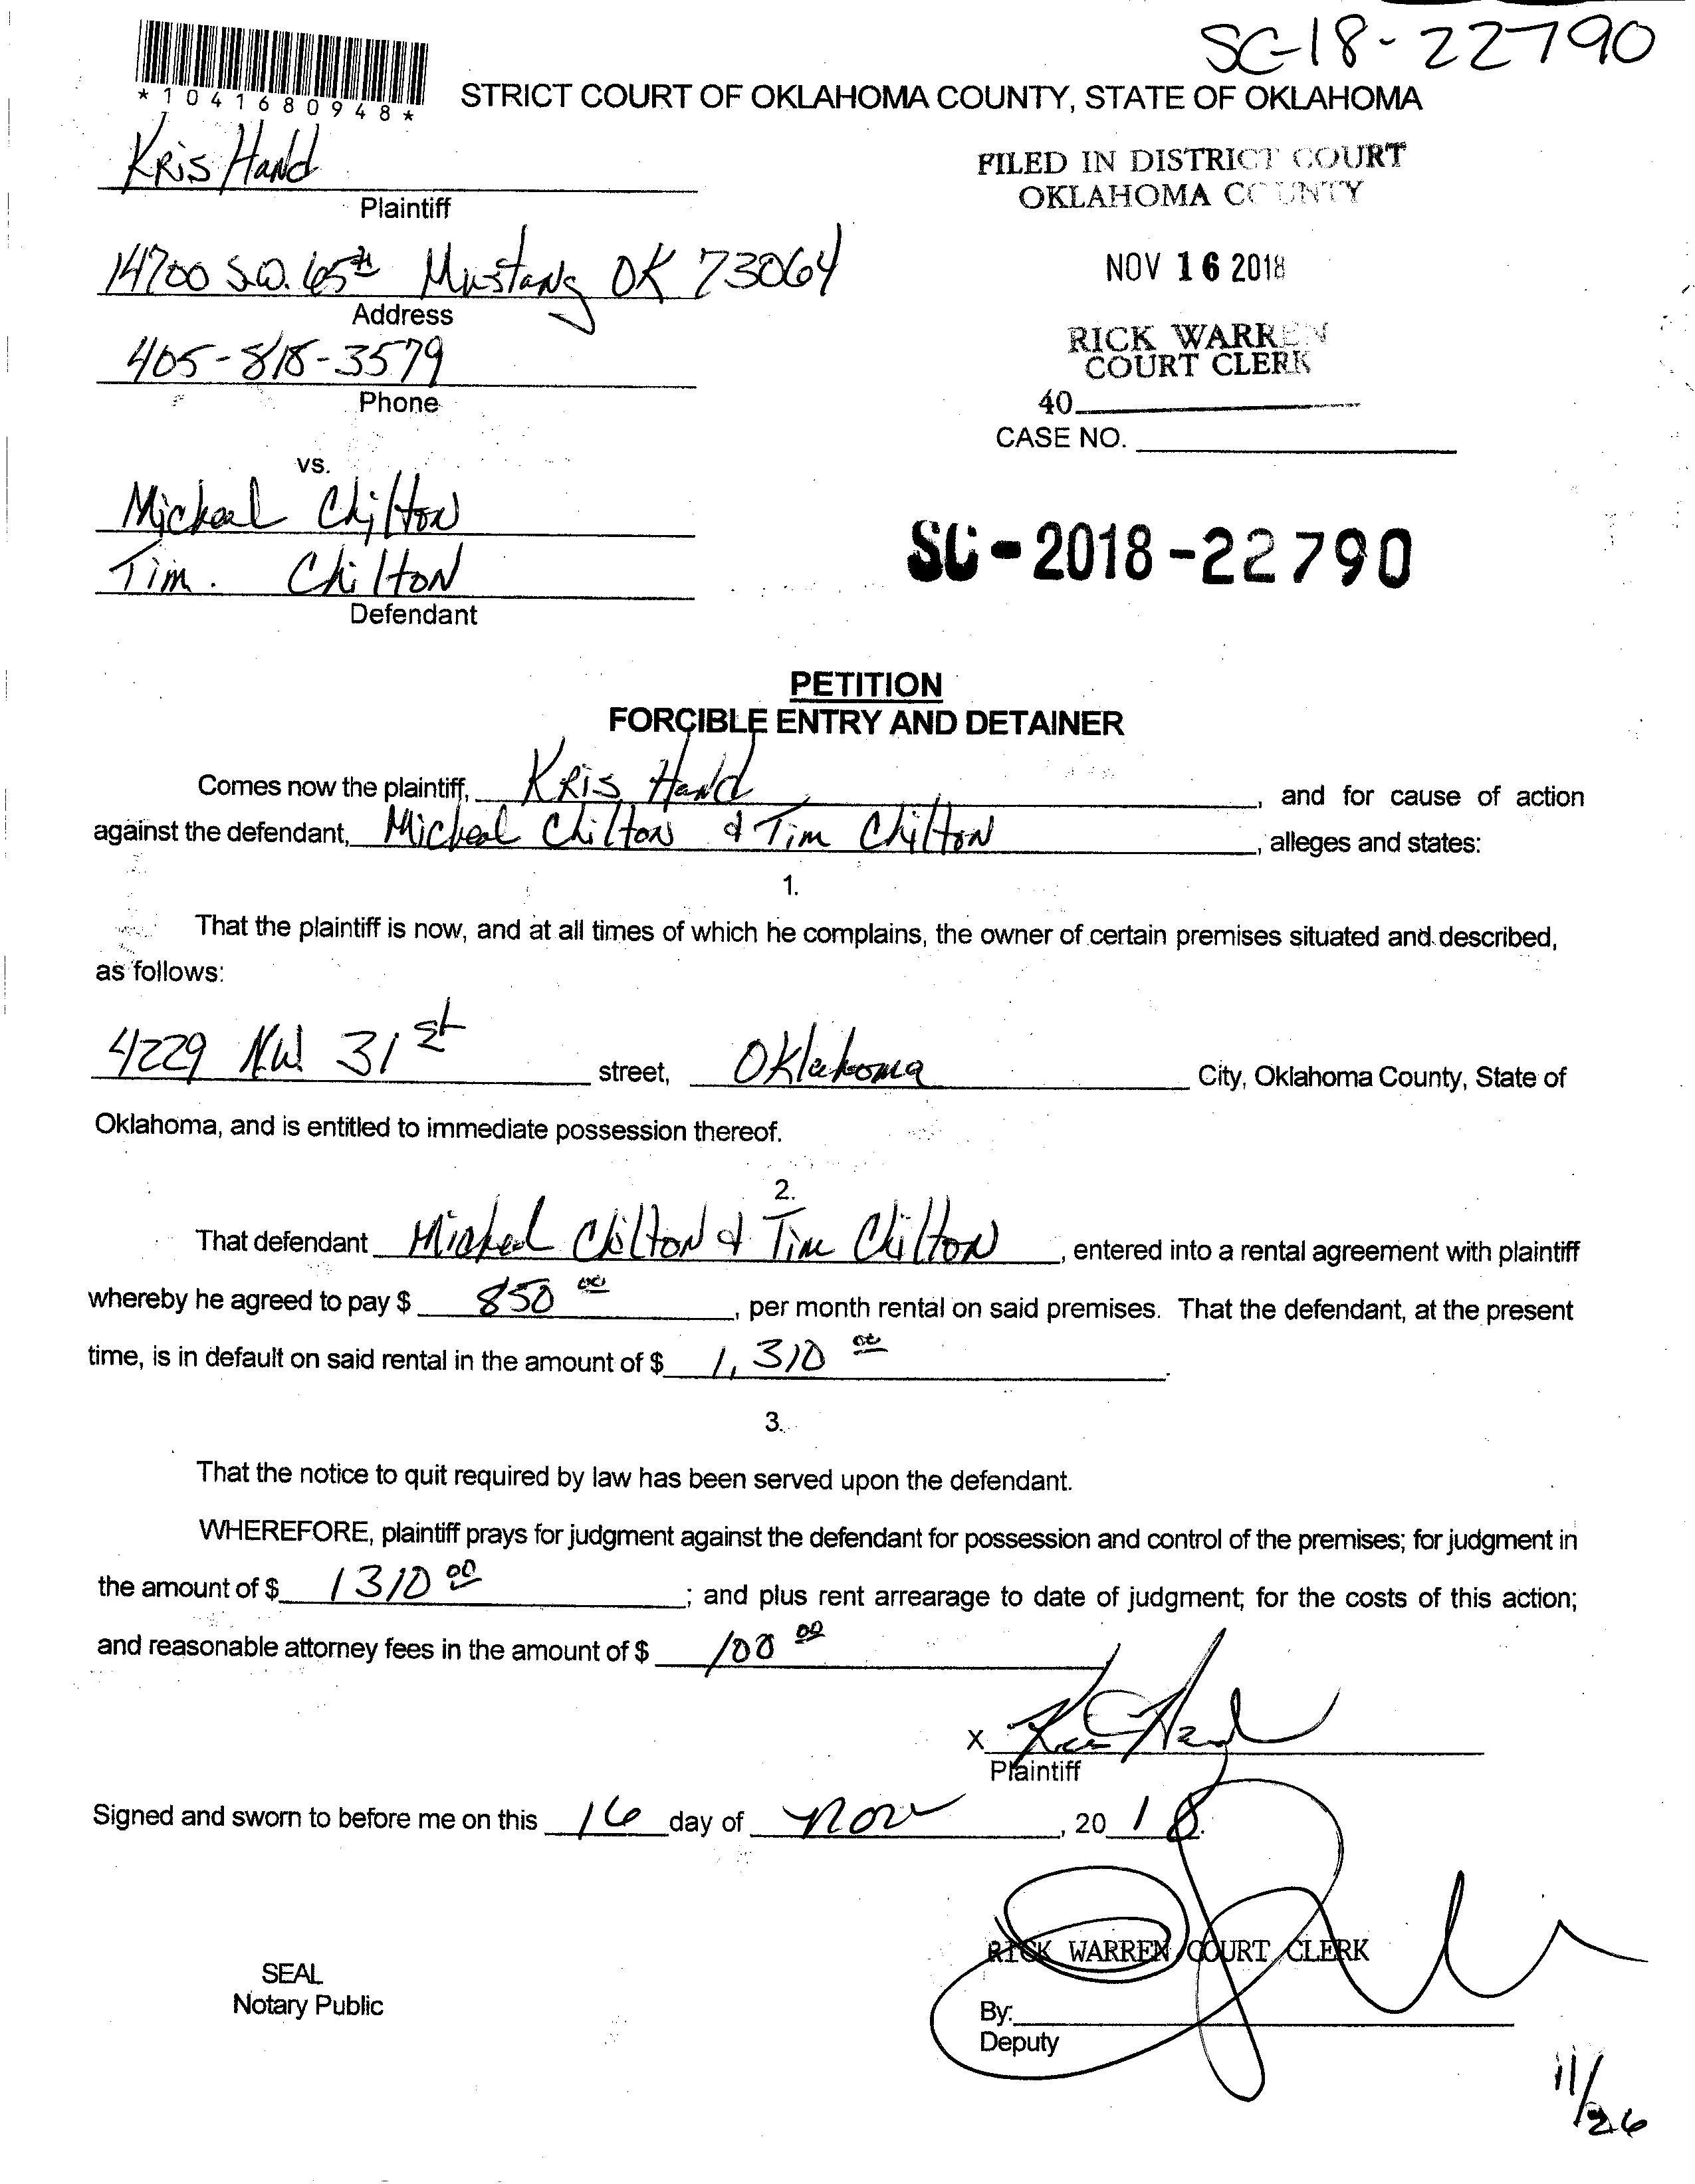 SC-18-22790
*1041680948*
STRICT COURT OF OKLAHOMA COUNTY, STATE OF OKLAHOMA
KRis Hand
Plaintiff
FILED IN DISTRICT COURT
OKLAHOMA COUNTY
14700 S.W. 65th Mustang OK 73064
Address
NOV 16 2018
405-818-3579
Phone
RICK WARREN
COURT CLERK
40
CASE NO.
vs.
Micheal Chilton
Tim. Chilton
Defendant
SC-2018-22790
PETITION
FORCIBLE ENTRY AND DETAINER
Comes now the plaintiff, KRis Hand, and for cause of action
against the defendant, Micheal Chilton & Tim Chilton, alleges and states:
1.
That the plaintiff is now, and at all times of which he complains, the owner of certain premises situated and described,
as follows:
4229 NW 31st street, Oklahoma City, Oklahoma County, State of
Oklahoma, and is entitled to immediate possession thereof.
2.
That defendant Micheal Chilton & Tim Chilton, entered into a rental agreement with plaintiff
whereby he agreed to pay $ 850 00, per month rental on said premises. That the defendant, at the present
time, is in default on said rental in the amount of $ 1,310 00.
3.
That the notice to quit required by law has been served upon the defendant.
WHEREFORE, plaintiff prays for judgment against the defendant for possession and control of the premises; for judgment in
the amount of $ 1310 00; and plus rent arrearage to date of judgment; for the costs of this action;
and reasonable attorney fees in the amount of $ 100 00
X Kris Hand
Plaintiff
Signed and sworn to before me on this 16 day of Nov, 2018.
RICK WARREN COURT CLERK
SEAL
Notary Public
By:
Deputy
11/26